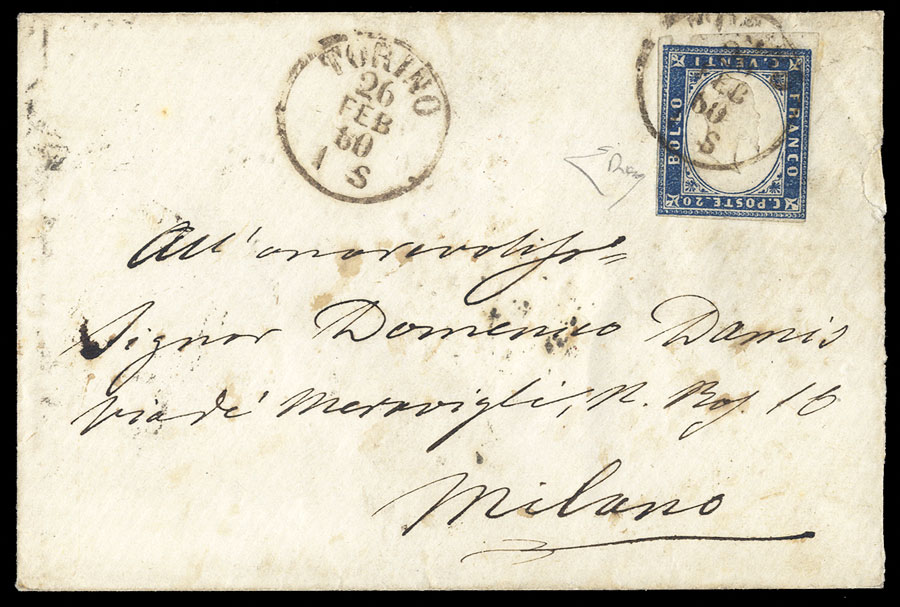 TORINO
26
FEB
60
1 S
C. VENTI
BOLLO
FRANCO
C. POSTE. 20
EB
60
S
All'onorevoliss=
Signor Domenico Damis
Via de' Meravigli, N. Ros. 16
Milano